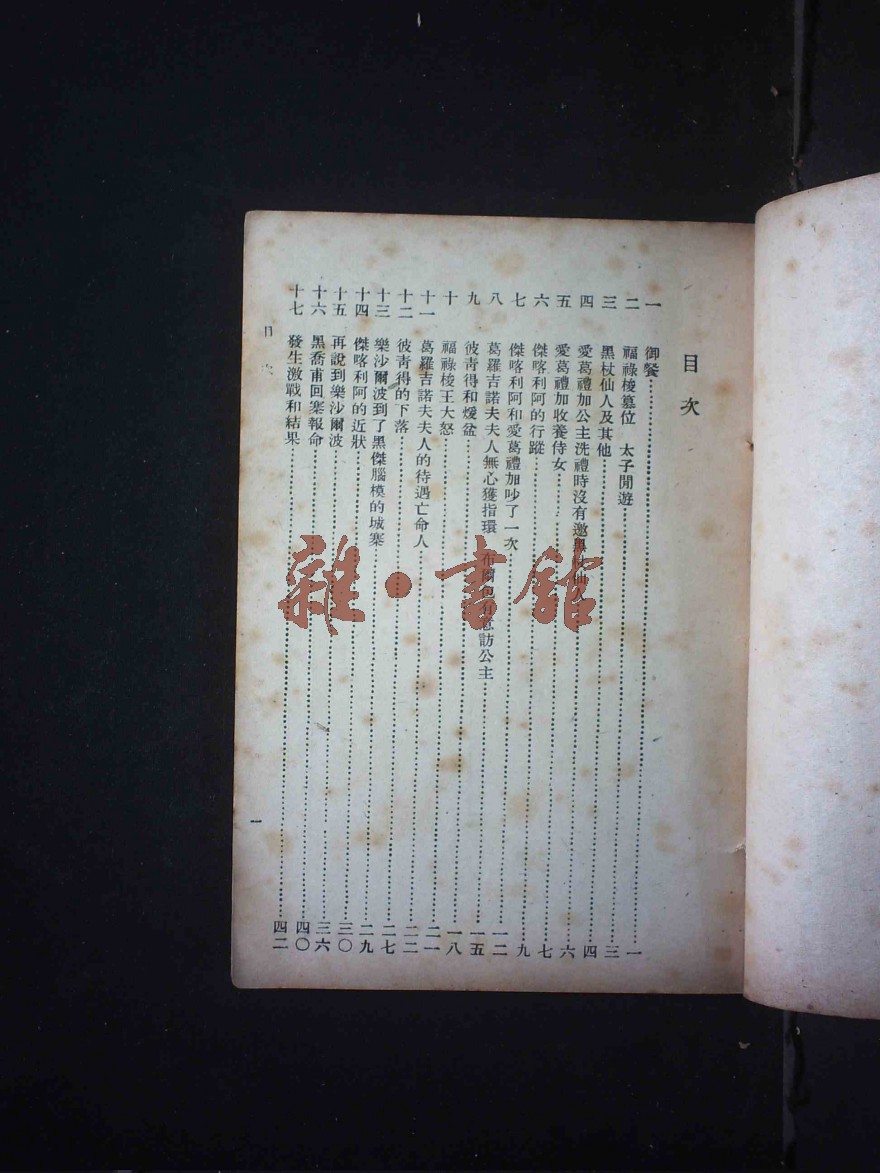 目次
一 御餐 一
二 福祿梭篡位 太子閒遊 三
三 黑杖仙人及其他 四
四 愛葛禮加公主洗禮時沒有邀黑杖仙人 六
五 愛葛禮加收養侍女 七
六 傑喀利阿的行蹤 九
七 傑喀利阿和愛葛禮加吵了一次 一二
八 葛羅吉諾夫夫人無心獲指環 訪公主 一五
九 彼靑得和煖盆 一八
十 福祿梭王大怒 二一
十一 葛羅吉諾夫夫人的待遇亡命人 二二
十二 彼靑得的下落 二七
十三 樂沙爾波到了黑傑腦模的城寨 二九
十四 傑喀利阿的近狀 三〇
十五 再說到樂沙爾波 三六
十六 黑喬甫回寨報命 四〇
十七 發生激戰和結果 四二
目次
一
雜·書館